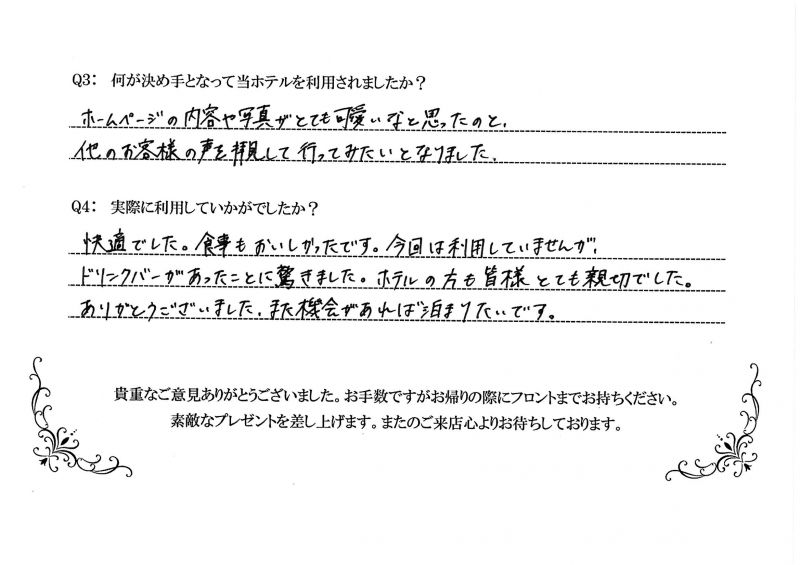 Q3： 何が決め手となって当ホテルを利用されましたか？
ホームページの内容や写真がとても可愛いなと思ったのと、
他のお客様の声を拝見して行ってみたいとなりました。
Q4： 実際に利用していかがでしたか？
快適でした。食事もおいしかったです。今回は利用していませんが、
ドリンクバーがあったことに驚きました。ホテルの方も皆様とても親切でした。
ありがとうございました。また機会があれば泊まりたいです。
貴重なご意見ありがとうございました。お手数ですがお帰りの際にフロントまでお持ちください。
素敵なプレゼントを差し上げます。またのご来店心よりお待ちしております。